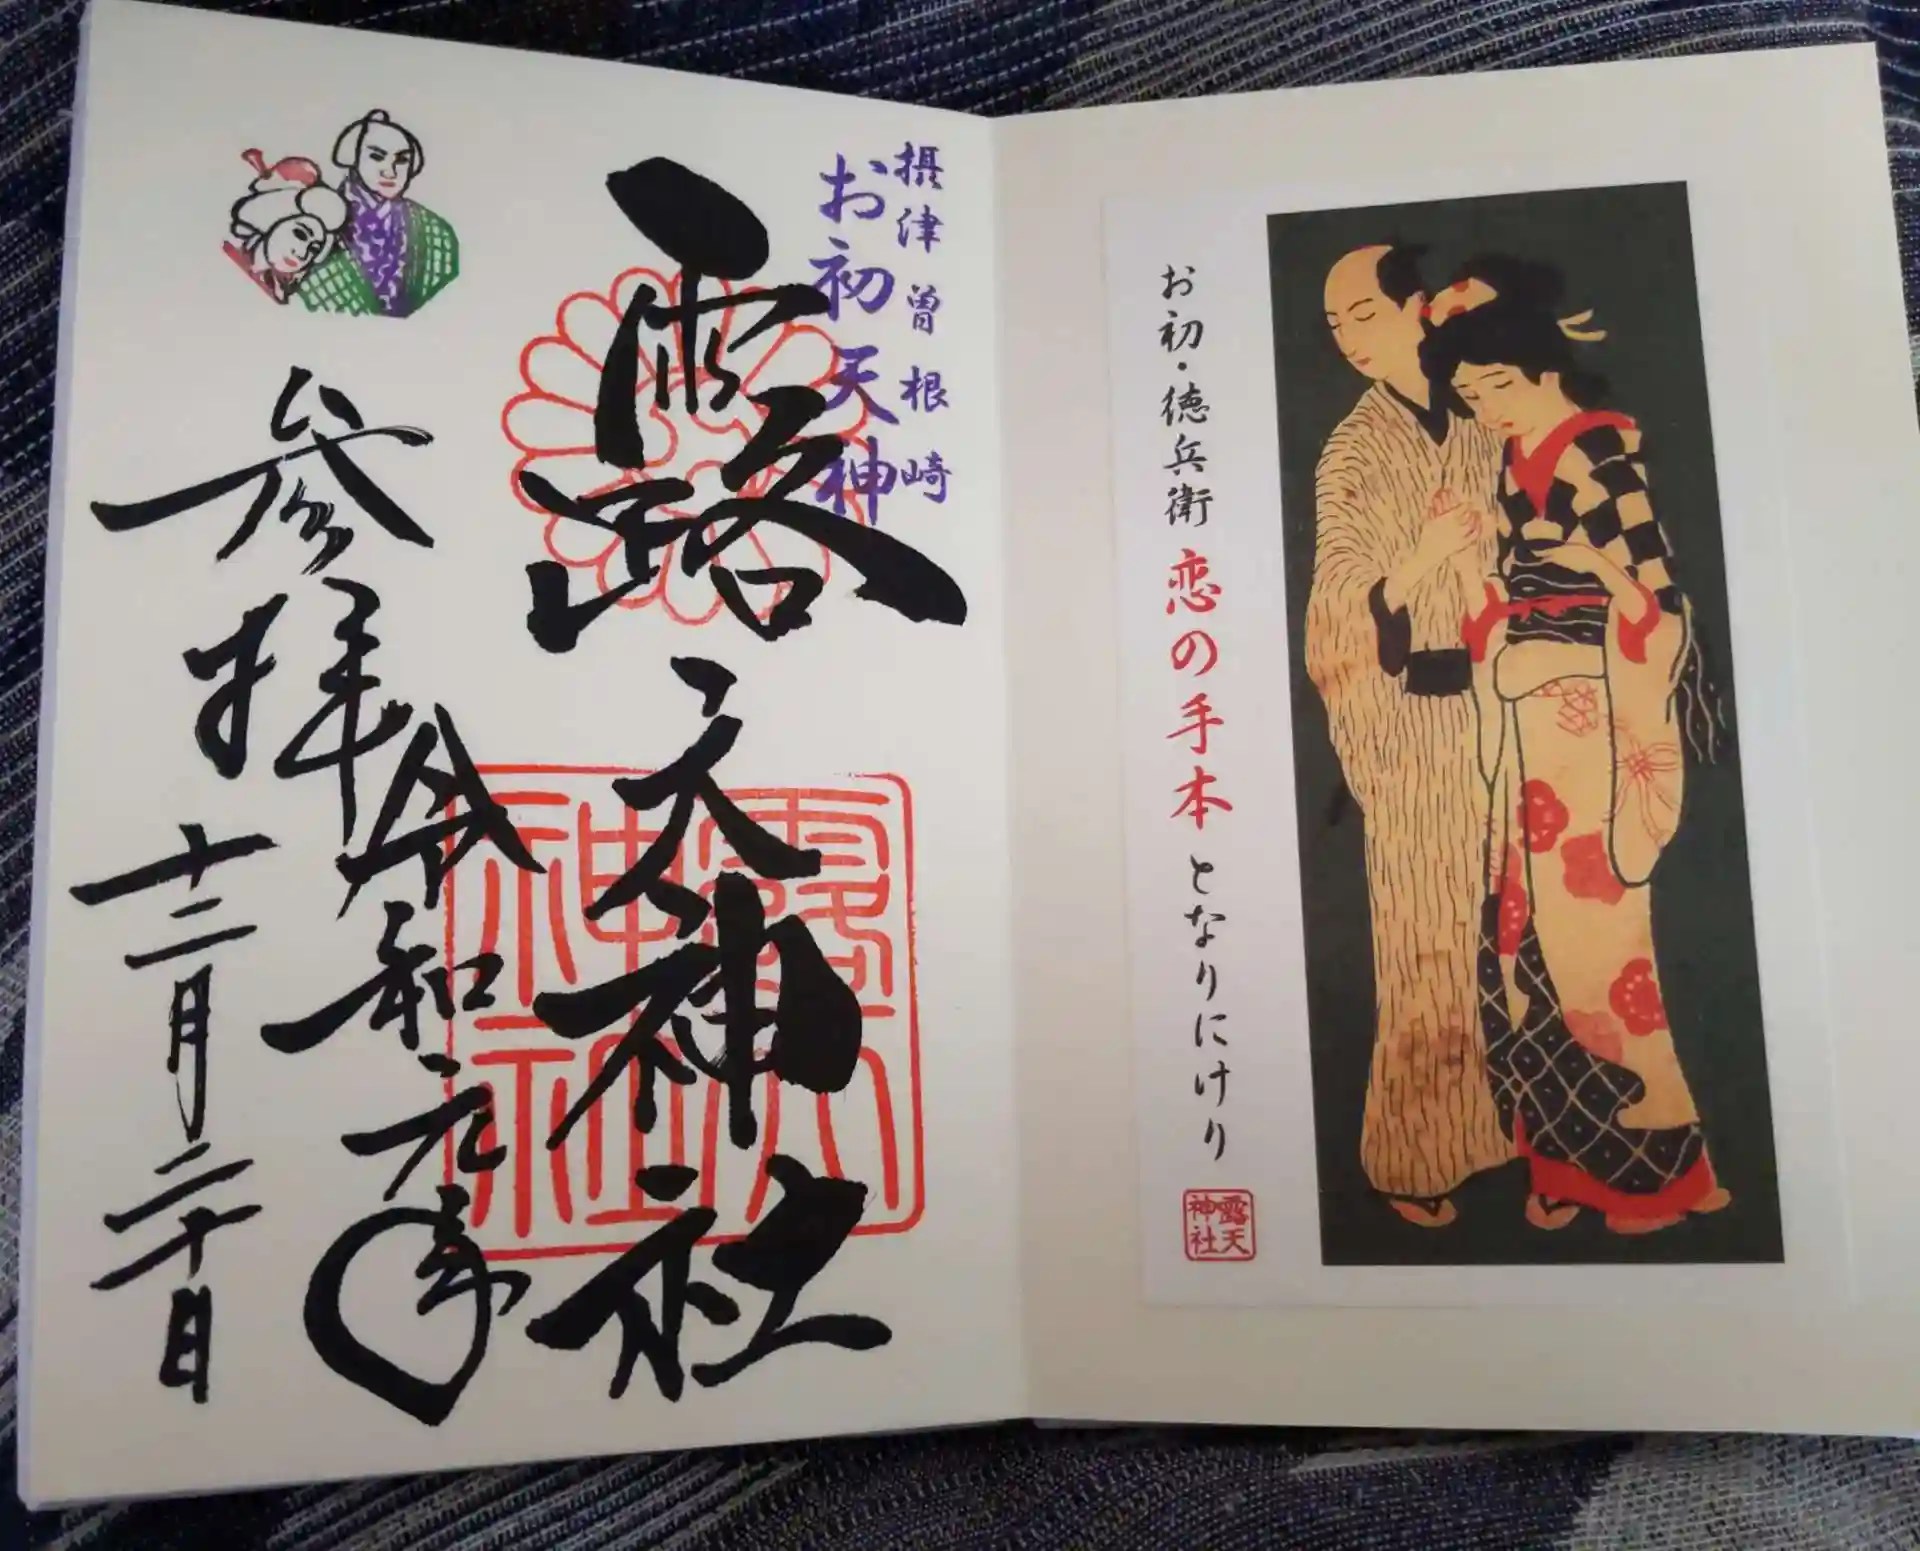 お初・徳兵衛 恋の手本 となりにけり
露天
神社
摂津曽根崎
お初天神
露天神社
露天
神社
参拝
令和元年
十二月二十日